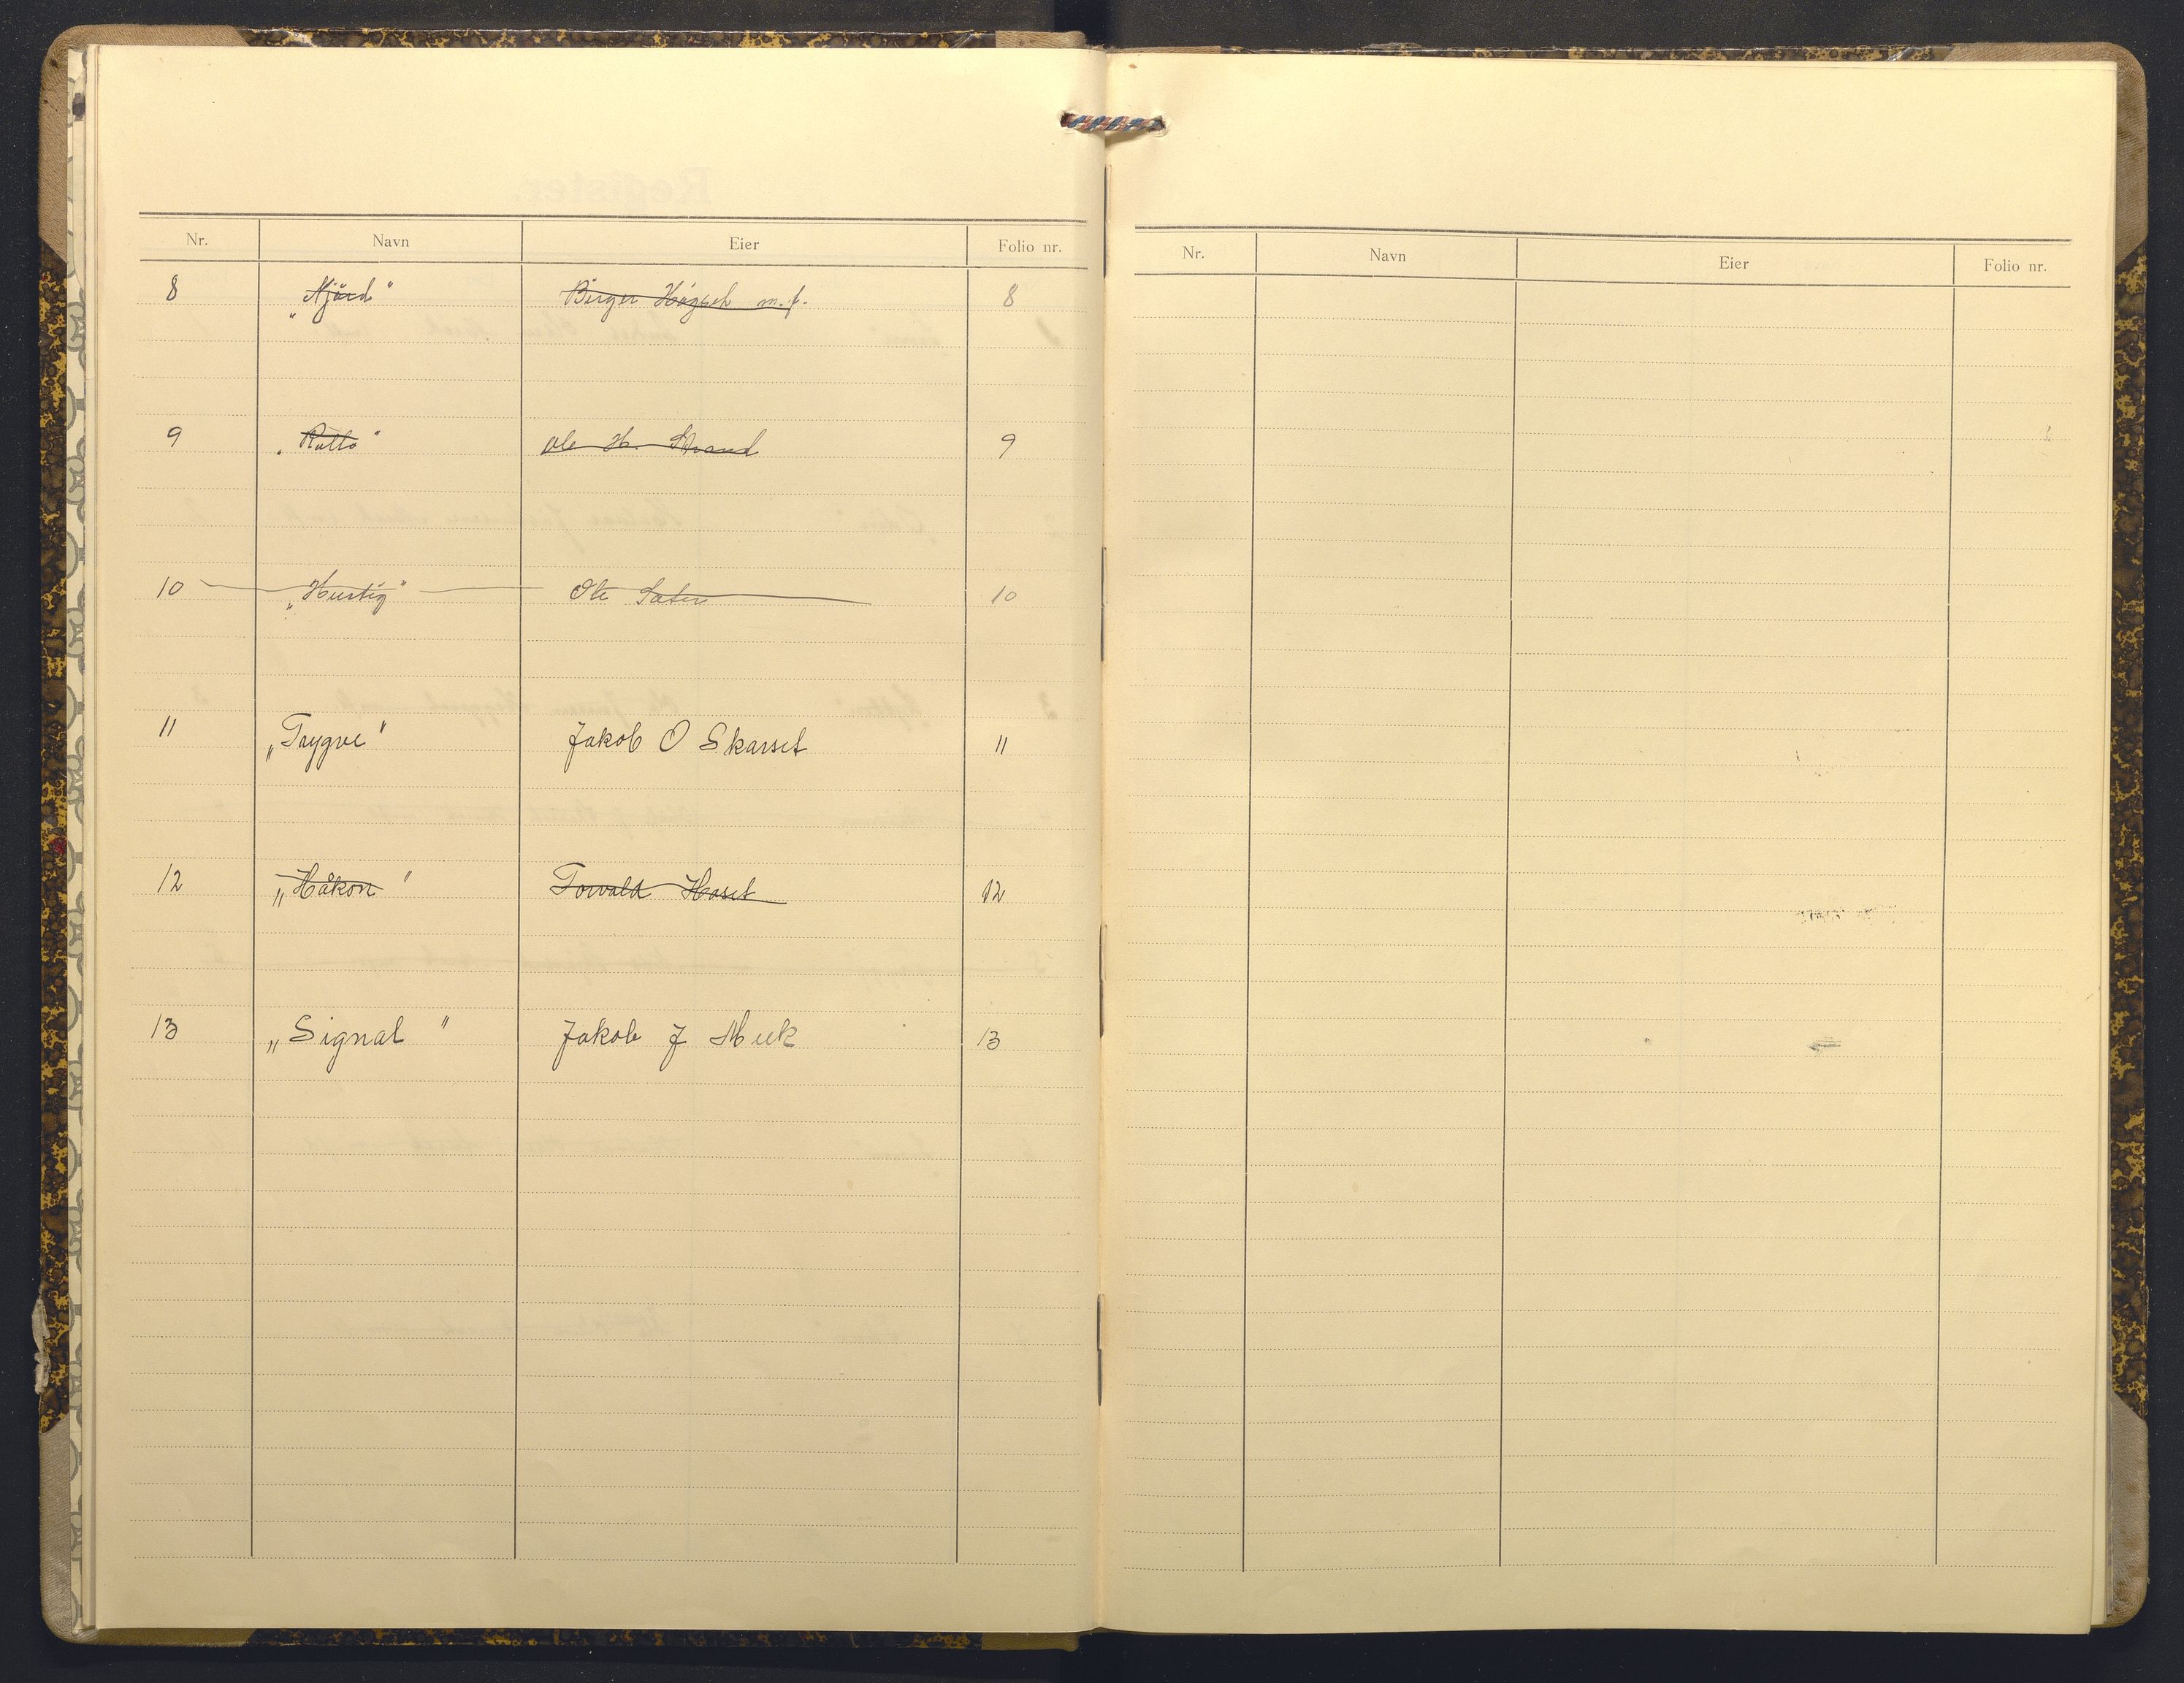 Nr. Navn Eier Folio nr.
8 „Njård" Birger Hågset m.f. 8
9 „Rollo" Ole H. Strand 9
10 „Hurtig" Ole Sæter 10
11 „Trygve" Jakob O Skarset 11
12 „Håkon" Torvald Haset 12
13 „Signal" Jakob J Mek 13
Nr. Navn Eier Folio nr.